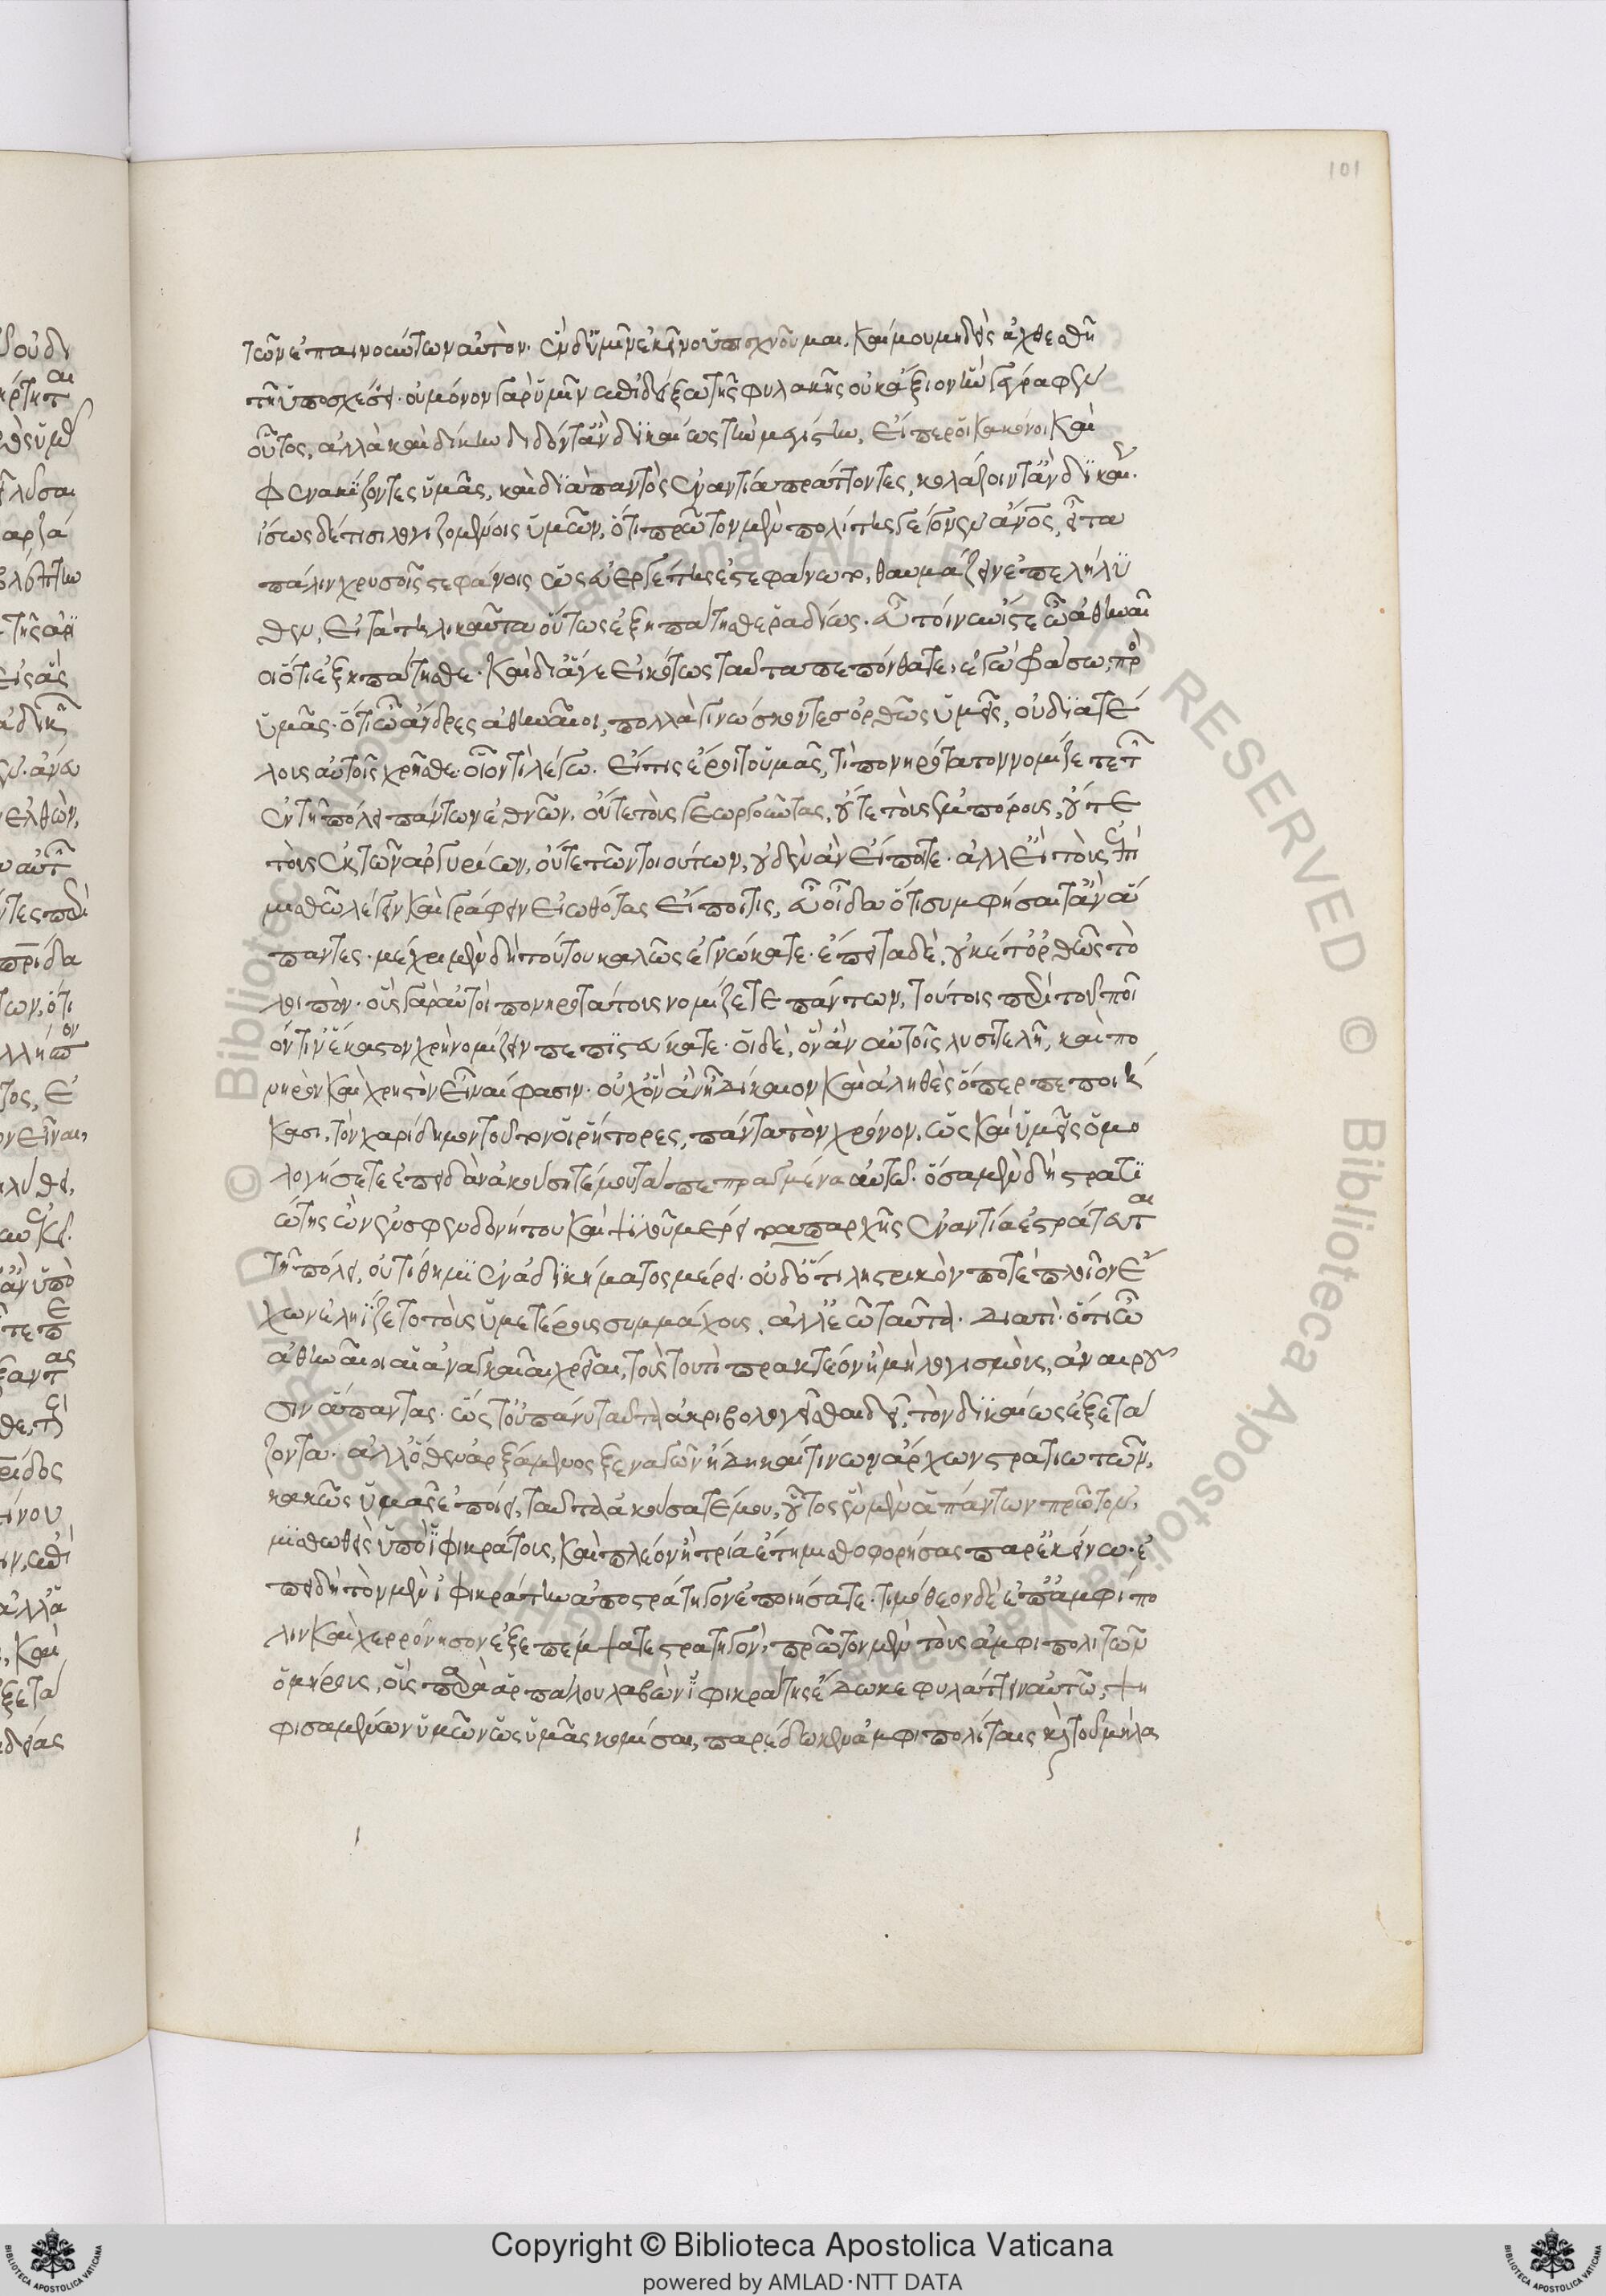 101
τῶν ἐπαινούντων αὐτόν. ἓν δ' ὑμῖν ἐκεῖνο ὑπισχνοῦμαι. καί μου μηδεὶς ἀχθεσθῆ
τῆ ὑποσχέσει. οὐ μόνον γὰρ ὑμῖν ἐπιδείξω τῆς φυλακῆς οὐκ ἄξιον ἣν γράφει
οὗτος, ἀλλὰ καὶ δίκην διδόντ' ἂν δικαίως τὴν μεγίστην, εἴπερ οἱ κακόνοι καὶ
φενακίζοντες ὑμᾶς, καὶ διὰ παντὸς ἐναντία πράττοντες, κολάζοιντ' ἂν δικαίως.
ἴσως δέ τισι λογιζομένοις ὑμῶν, ὅτι πρῶτον μὲν πολίτης γέγονεν ἄνος, εἶτα
πάλιν χρυσοῖς στεφάνοις ὡς εὐεργέτης ἐστεφάνωται, θαυμάζειν ἐπελήλυ
θεν, εἰ τὰ τηλικαῦτα οὕτως ἐξηπάτησθε ῥαδίως. εὖ τοίνυν ἴστε ὦ ἀθηναῖ
οι ὅτι ἐξηπάτησθε. καὶ δι' ἅ γε εἰκότως ταῦτα πεπόνθατε, ἐγὼ φράσω πρὸς
ὑμᾶς. ὅτι ὦ ἄνδρες ἀθηναῖοι, πολλὰ γινώσκοντες ὀρθῶς ὑμεῖς, οὐ διὰ τέ
λους αὐτοῖς χρῆσθε. οἷόν τι λέγω. εἴ τις ἔροιτο ὑμᾶς, τί πονηρότατον νομίζετε τῶν
ἐν τῆ πόλει πάντων ἐθνῶν. οὔτε τοὺς γεωργοῦντας, οὔτε τοὺς ἐμπόρους, οὔτε
τοὺς ἐκ τῶν ἀργυρίων, οὔτε τῶν τοιούτων, οὐδέν' ἂν εἴποιτε. ἀλλ' εἰ τοὺς ἐπὶ
μισθῶ λέγειν καὶ γράφειν εἰωθότας εἴποι τις, εὖ οἶδα ὅτι συμφήσαιτ' ἂν ἅ
παντες. μέχρι μὲν δὴ τούτου καλῶς ἐγνώκατε. ἔπειτα δὲ, οὐκέτ' ὀρθῶς τὸ
λοιπόν. οὓς γὰρ αὐτοὶ πονηροτάτους νομίζετε πάντων, τούτοις περὶ τοῦ ποῖ
όν τιν' ἕκαστον χρὴ νομίζειν πεπιστεύκατε. οἱ δὲ, ὃν ἂν αὐτοῖς λυσιτελῆ, καὶ πο
νηρὸν καὶ χρηστὸν εἶναί φασιν. οὐχ ὃν ἂν ἦ δίκαιον καὶ ἀληθὲς ὅπερ πεποιή
κασι, τὸν χαρίδημον τοῦτον οἱ ῥήτορες, πάντα τὸν χρόνον, ὡς καὶ ὑμεῖς ὁμο
λογήσετε ἐπειδὰν ἀκούσητέ μου τὰ πεπραγμένα αὐτῶ. ὅσα μὲν δὴ στρατι
ώτης ὢν ἐν σφενδονήτου καὶ ψιλοῦ μέρει τὸ ἀπαρχῆς ἐναντία ἐστράτευται
τῆ πόλει, οὐ τίθημι ἐν ἀδικήματος μέρει. οὐδ' ὅτι ληστρικόν ποτε πλοῖον ἔ
χων ἐληίζετο τοὺς ὑμετέρους συμμάχους, ἀλλ' ἐῶ ταῦτα. διὰ τί. ὅτι ὦ
ἀθηναῖοι αἱ ἀναγκαῖαι χρεῖαι, τοὺς τοῦ τί πρακτέον ἢ μὴ λογισμοὺς, ἀναιροῦ
σιν ἅπαντας. ὥστ' οὐ πάνυ ταῦτα ἀκριβολογεῖσθαι δεῖ, τὸν δικαίως ἐξετά
ζοντα. ἀλλ' ὅθεν ἀρξάμενος ξεναγῶν ἤδη καί τινων ἄρχων στρατιωτῶν,
κακῶς ὑμᾶς ἐποίει, ταῦτα ἀκούσατέ μου, οὗτος ἓν μὲν ἁπάντων πρῶτον,
μισθωθεὶς ὑπὸ ἰφικράτους, καὶ πλέον ἢ τρία ἔτη μισθοφορήσας παρ' ἐκείνω. ἐ
πειδὴ τὸν μὲν ἰφικράτην ἀποστράτηγον ἐποιήσατε. τιμόθεον δὲ ἐπ' ἀμφίπο
λιν καὶ χερρόνησον ἐξεπέμψατε στρατηγόν, πρῶτον μὲν τοὺς ἀμφιπολιτῶν
ὁμήρους, οὓς παρὰ ἁρπάλου λαβὼν ἰφικράτης ἔδωκε φυλάττειν αὐτῶ, ψη
φισαμένων ὑμῶν ὡς ὑμᾶς κομίσαι, παρέδωκεν ἀμφιπολίταις καὶ τοῦ μὴ λα
Copyright © Biblioteca Apostolica Vaticana
powered by AMLAD·NTT DATA